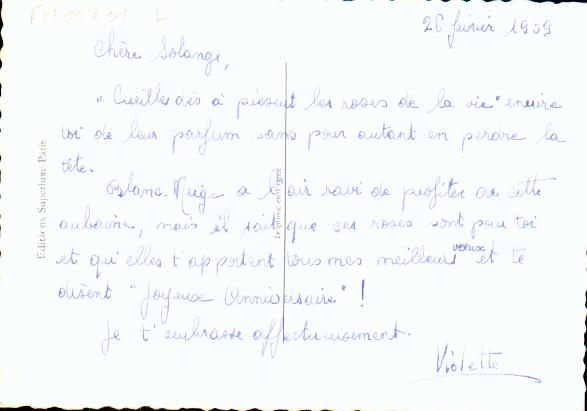 FM 00931 D
26 février 1959
Chère Solange,
"Cueille dès à présent les roses de la vie" enivre
toi de leur parfum sans pour autant en perdre la
tête.
Blanc-Neige a l'air ravi de profiter de cette
aubaine, mais il sait que ces roses sont pour toi
et qu'elles t'apportent tous mes meilleurs voeux et te
disent "Joyeux Anniversaire" !
Je t'embrasse affectueusement.
Violette
Editions Superluxe Paris
Imprimé en France